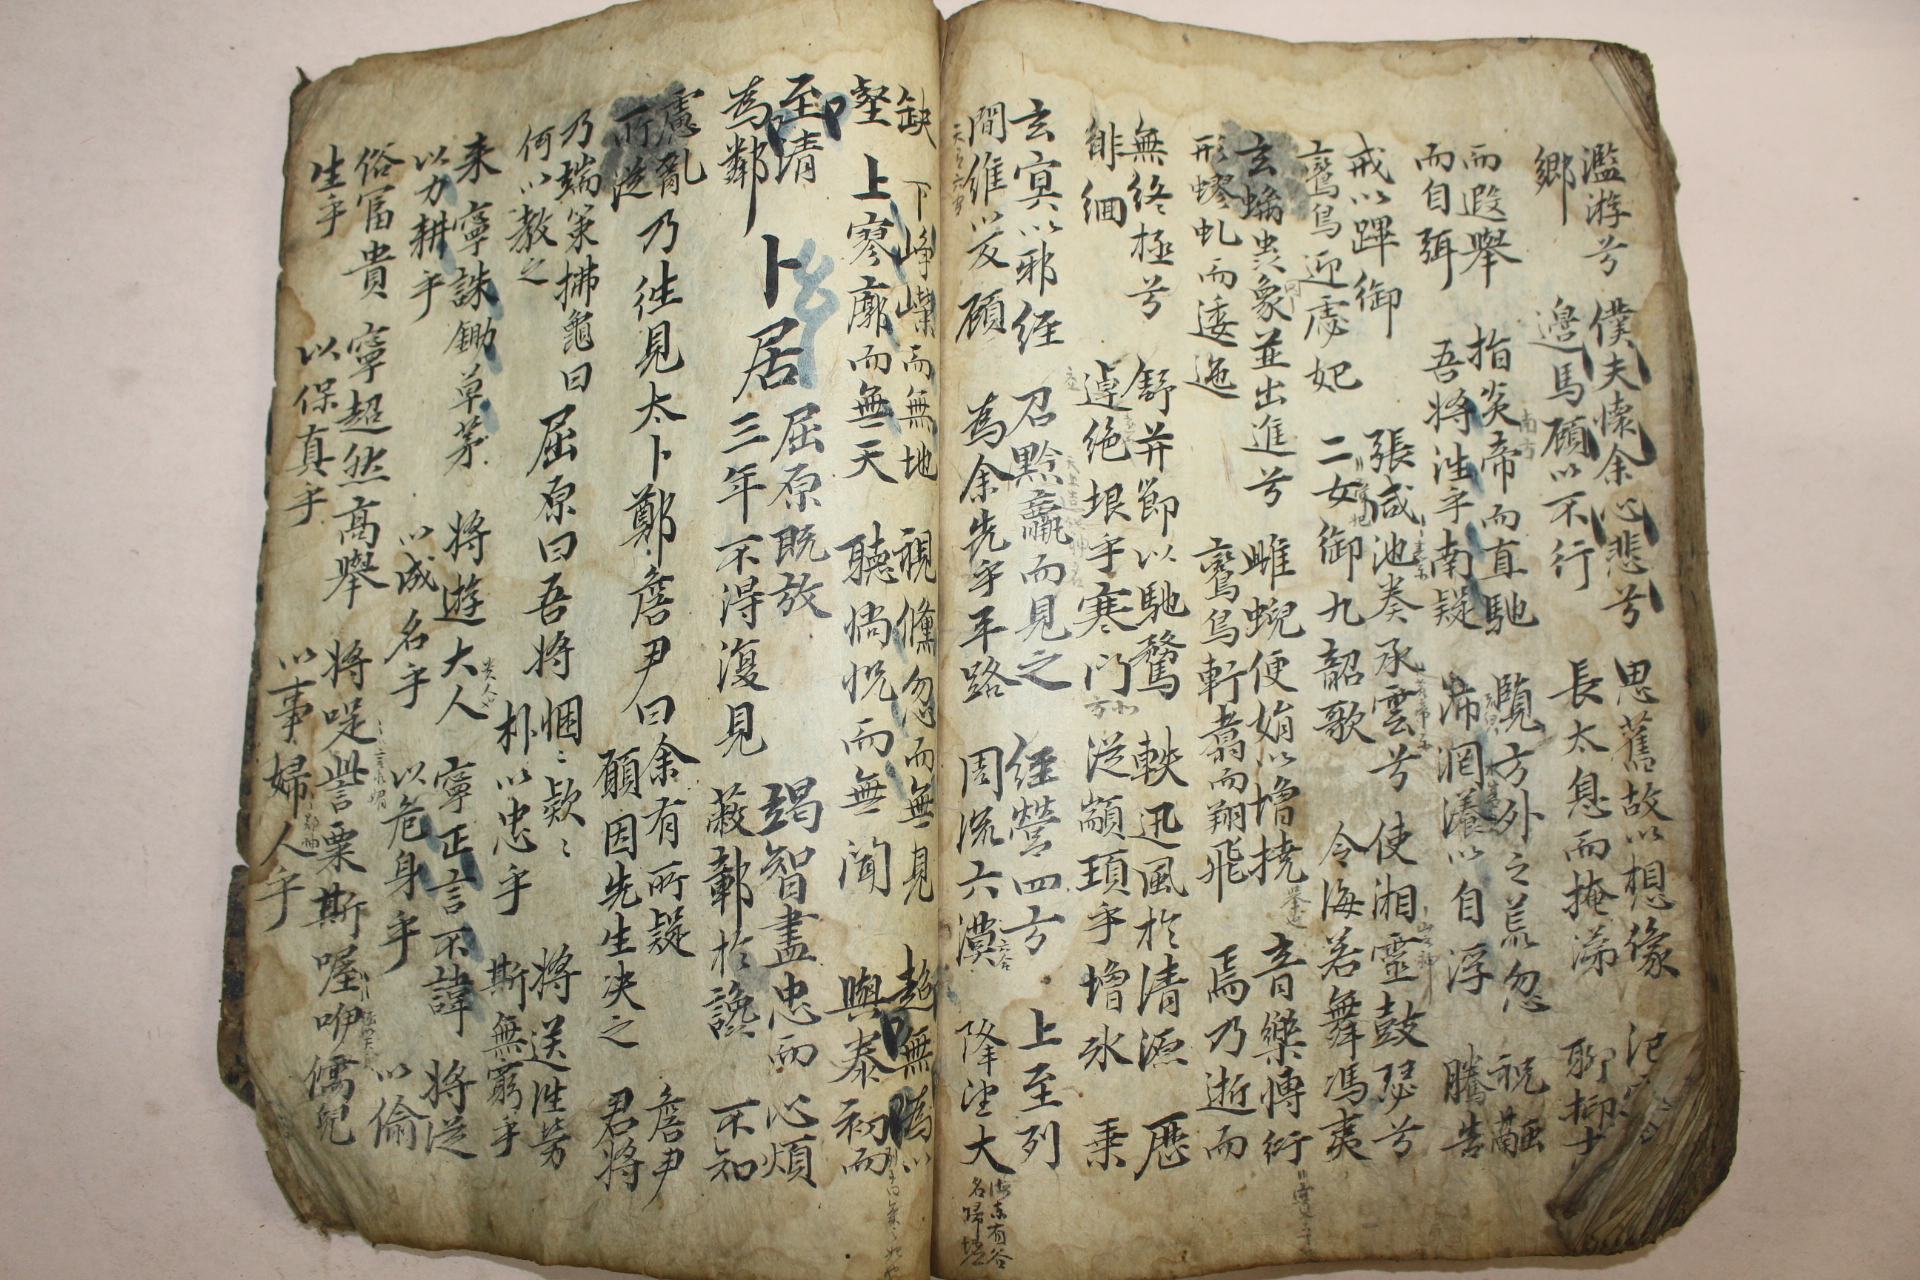 濫游兮 僕夫懷余心悲兮 思舊故以想像 氾
鄉 邉馬顧以不行 長太息而掩涕 聊抑
而遐舉 指炎帝而直馳 覽方外之荒忽 祝融
南方
而自弭 吾將往乎南疑 沛罔瀁以自浮 騰告
戒以蹕御 張咸池奏承雲兮 使湘靈鼓瑟兮
鸞鳥迎虙妃 二女御九韶歌 令海若舞馮夷
玄螭虫象並出進兮 雌蜺便娟以增撓 音樂博衍
形蟉虬而逶迤 鸞鳥軒翥而翔飛 焉乃逝而
無終極兮 舒并節以馳騖 軼迅風於清源 歷
徘徊 逴絕垠乎寒門 從顓頊乎增氷 乗
北方
玄冥以邪經 召黔羸而見之 經營四方 上至列
間維以反顧 為余先乎平路 周流六漠 降望大
六谷
海东有谷
名歸墟
缺 下崢嶸而無地 視儵忽而無見 超無為以
壑 上寥廓而無天 聽惝怳而無聞 與泰初而
至清
為鄰
卜居
屈原既放 竭智盡忠而 心煩
三年不得復見 蔽鄣於讒 不知
慮亂 乃往見太卜鄭詹尹曰 余有所疑 詹尹
所從 願因先生决之 君將
乃端策拂龜曰 屈原曰吾將 悃〻欵〻 將送往勞
何以教之 朴以忠乎 斯無窮乎
来 寧誅鋤草茅 將遊大人 寧正言不諱 將從
貴人也
以力耕乎 以成名乎 以危身乎 以偷
俗冨貴 寧超然高舉 將哫訾栗斯喔咿儒兒
生乎 以保真乎 以事婦人乎